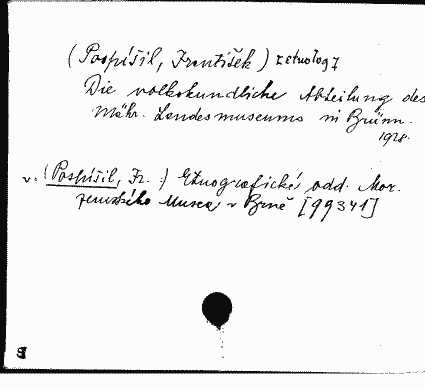 (Pospíšil, František) [etnolog]
Die volkskundliche Abteilung des
Mähr. Landesmuseums in Brünn.
1928.
v. (Pospíšil, Fr.:) Etnografické odd. Mor.
zemského Musea v Brně [99341]